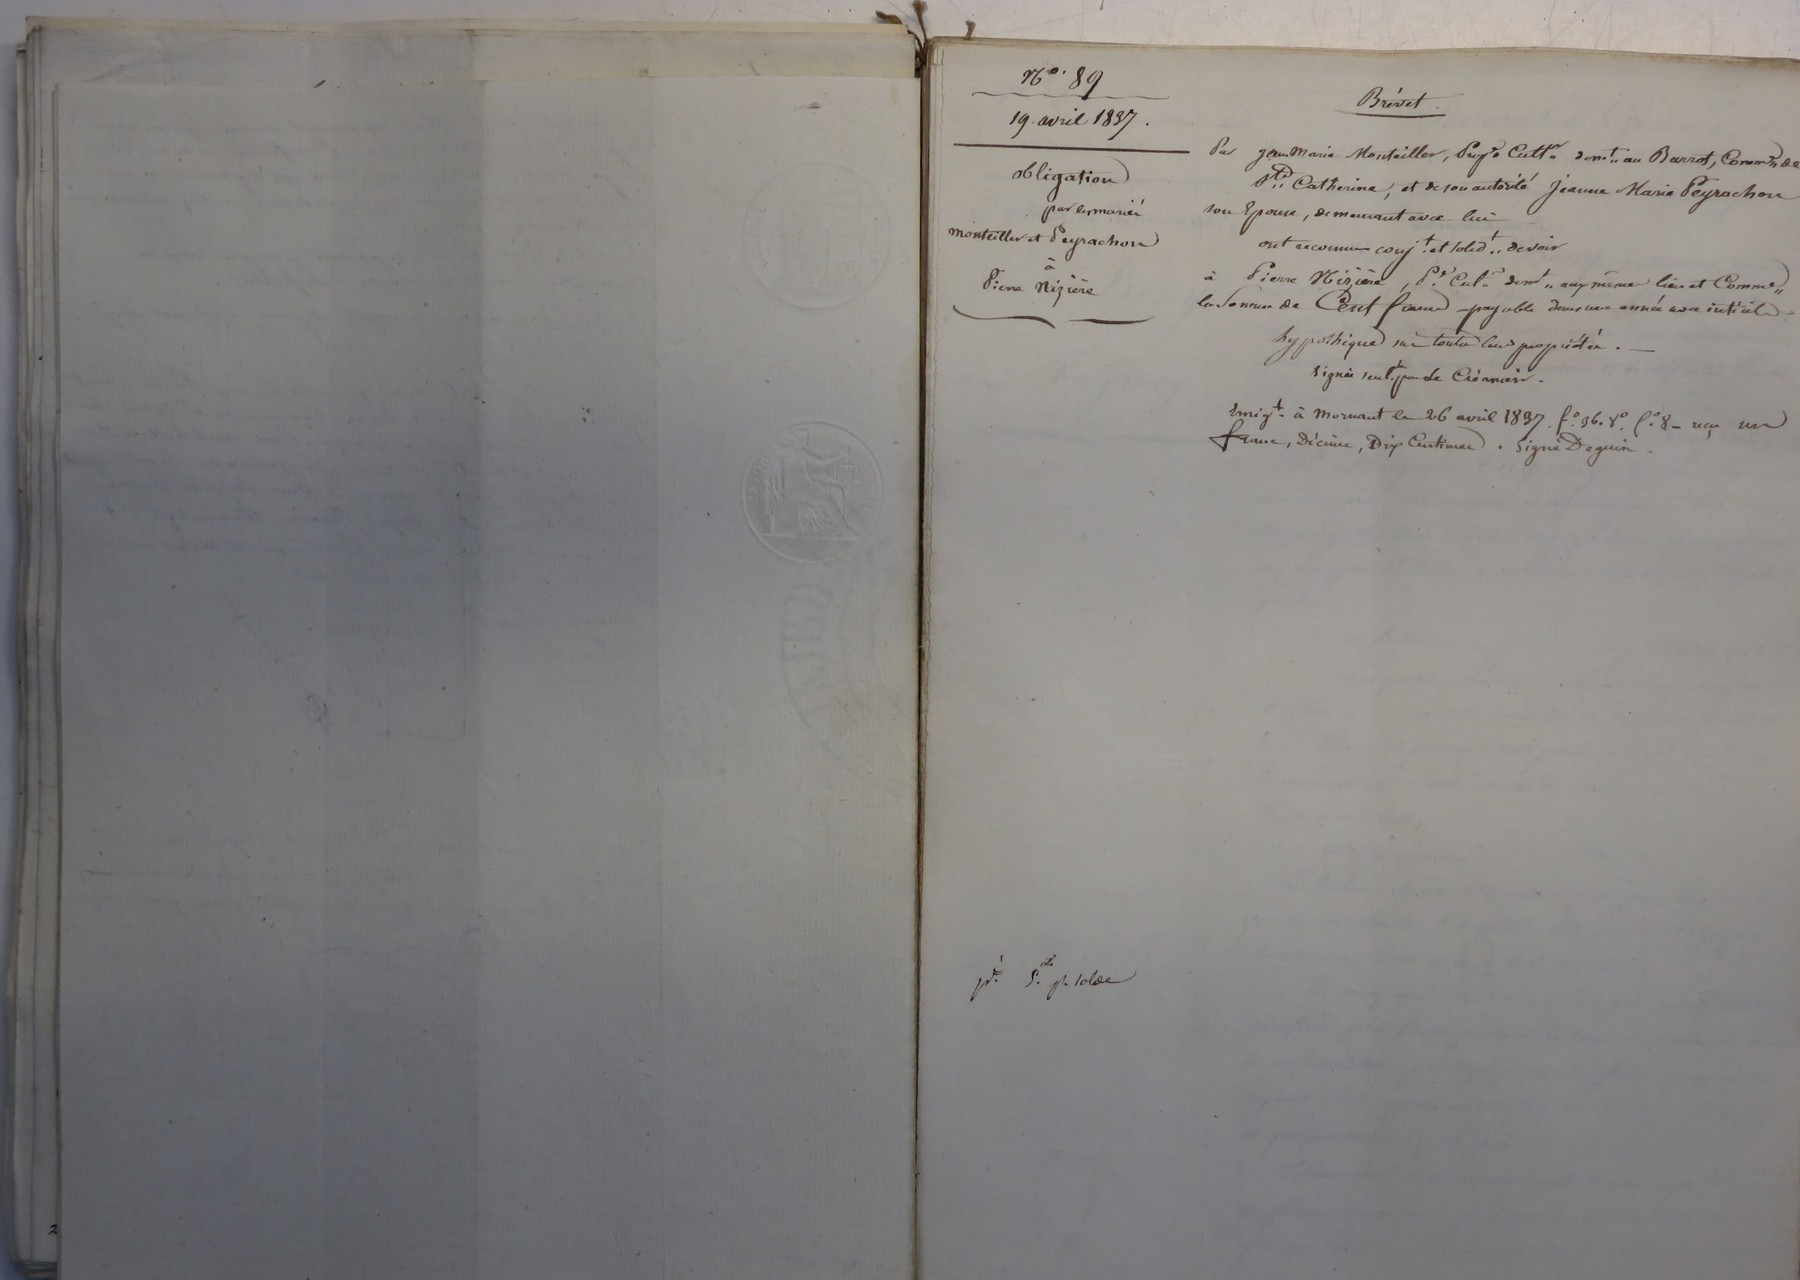 N.º 89
19 avril 1837.
obligation
par les mariés
Monteiller et Peyrachon
à
Pierre Nizière
Brévet.
Par Jean Marie Monteiller, Prop.re Cult.r dem.t au Barrot, Comm.ne de
S.te Catherine, et de son autorité Jeanne Marie Peyrachon
son Epouse, demeurant avec lui
ont reconnu conj.t et solid.t devoir
à Pierre Nizière, P.re Cult.r dem.t aux même lieu et Comme.
la Somme de Cent francs payable dans une année avec intérêt
hypothèque sur toutes leurs propriétés. —
Signé seul.t par le Créancier.
Enreg.t à Mornant le 26 avril 1837. f.º 96. v.º C.e 8 - reçu un
franc, Décime, Dix Centimes. Signé Deguin.
solde
2